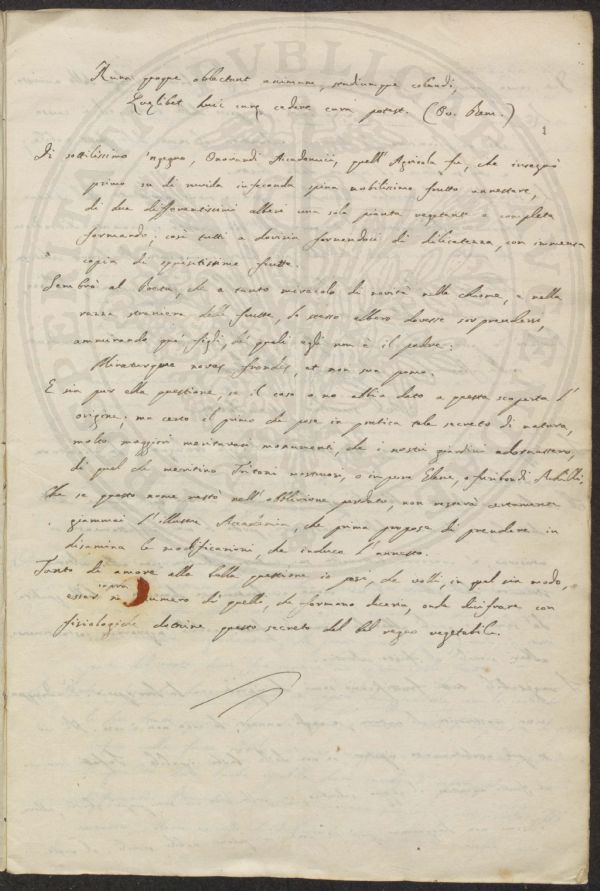 Rura quoque oblectant animum, studiumque colendi;
Quaelibet huic curae cedere cura potest. (Ov. Rem.)
1
Di sottilissimo ingegno, Onorandi Accademici, quell' Agricola fu, che insegnò
primo su di ruvida infeconda spina nobilissimo frutto annestare,
di due differentissimi alberi una sola pianta vegetante e completa
formando; così tutti a dovizia fornendoci di dilicatezza, con immensa
copia di squisitissime frutte.
Sembrò al Poeta, che a tanto miracolo di novità nelle chiome, e nella
razza straniera delle frutte, lo stesso albero dovesse sorprendersi,
ammirando que' figli, de' quali egli non è il padre:
Miraturque novas frondes, et non sua poma.
E sia pur ella questione, se il caso o no abbia dato a questa scoperta l'
origine; ma certo il primo che pose in pratica tale secreto di natura,
molto maggiori meritavasi monumenti, che i nostri giardini adornassero,
di quel che meritino Tritoni mostruosi, o impure Elene, o furibondi Achilli.
Che se questo nome restò nell' obblivione perduto, non resterà certamente
giammai l' illustre Accademia, che prima propose di prendere in
disamina le modificazioni, che induce l' annesto.
Tanto di amore alla bella questione io posi, che volli, in qual sia modo,
esser in numero di quelli, che formano diceria, onde diciferare con
fisiologiche dottrine questo secreto del bel regno vegetabile.